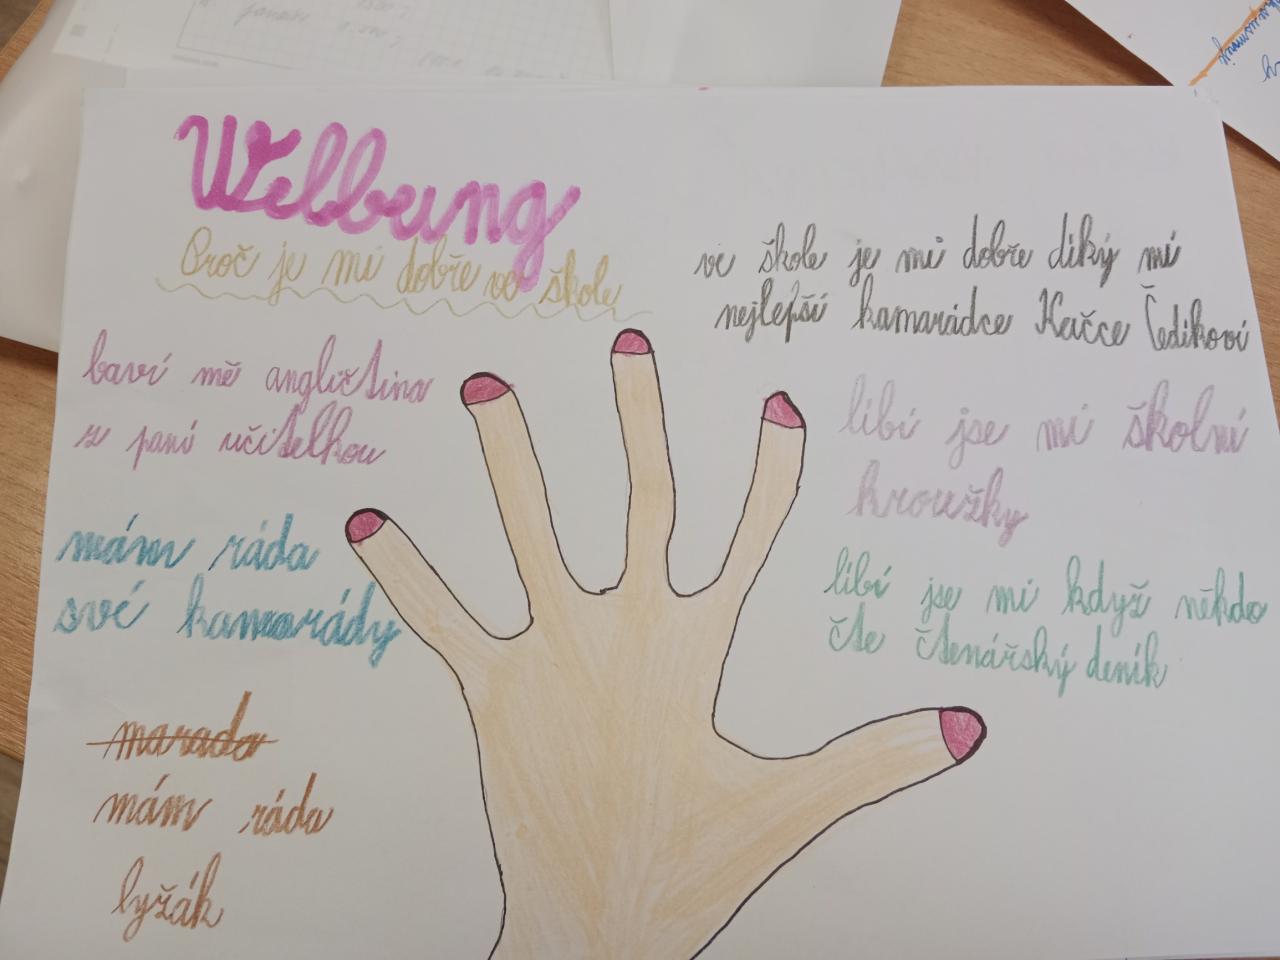 Welbeing
Proč je mi dobře ve škole
ve škole je mi dobře díký mí
nejlepší kamarádce Kačce Čedikoví
baví mě angličtina
z paní učitelkou
líbí jse mi školní
kroužky
mám ráda
své kamarády
líbí jse mi když někdo
čte čtenářský deník
marada
mám ráda
lyžák